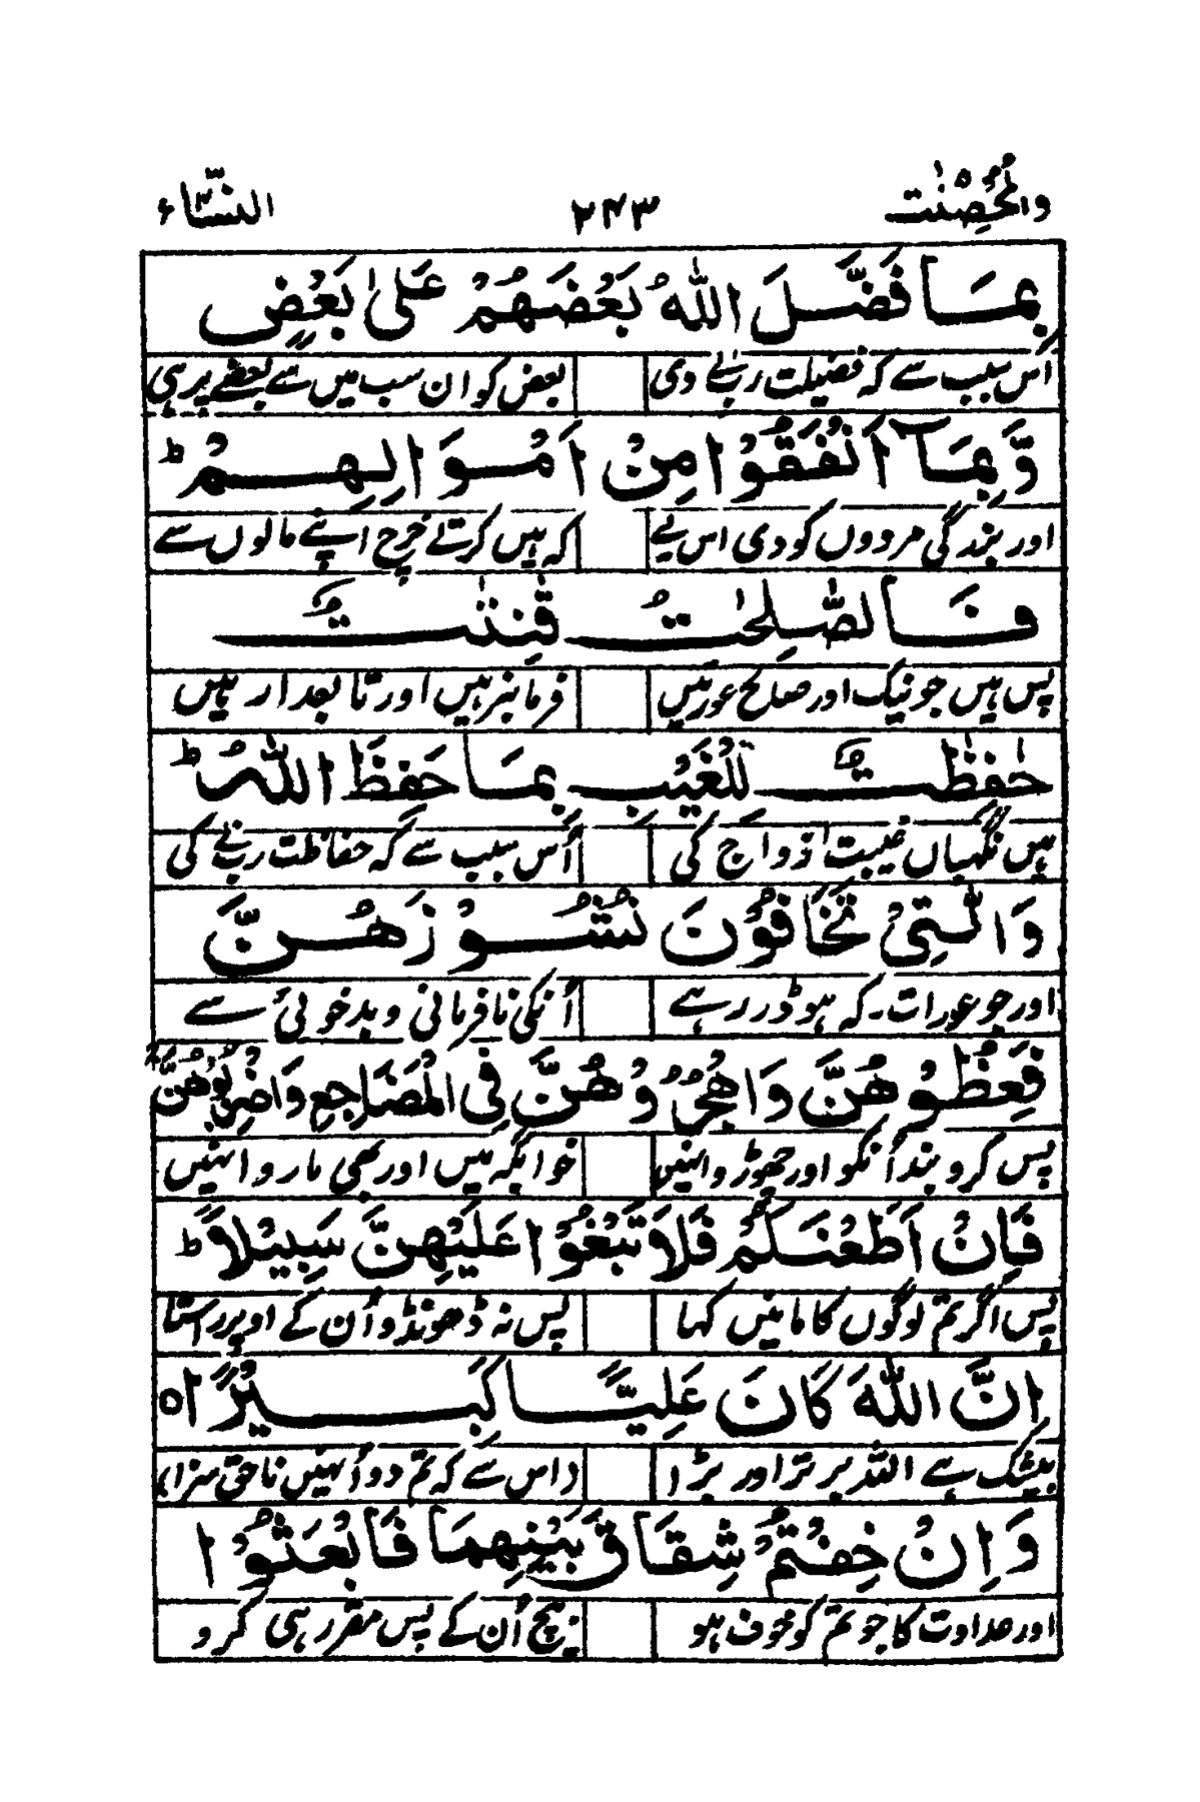 والمحصنت ۲۴۳ النساء ۴
بِمَا فَضَّلَ اللّٰهُ بَعْضَهُمْ عَلٰى بَعْضٍ
اس سبب سے کہ فضیلت رب نے دی بعض کو ان سب میں سے بعضے پر ہی
وَّبِمَآ اَنْفَقُوْا مِنْ اَمْوَالِهِمْ ط
اور بزرگی مردوں کو دی اس لیے کہ ہیں کرتے خرچ اپنے مالوں سے
فَالصّٰلِحٰتُ قٰنِتٰتٌ
پس ہیں جو نیک اور صالح عورتیں فرمانبر ہیں اور تابعدار ہیں
حٰفِظٰتٌ لِّلْغَيْبِ بِمَا حَفِظَ اللّٰهُ ط
ہیں نگہباں غیبت ازواج کی اُس سبب سے کہ حفاظت رب نے کی
وَالّٰتِىْ تَخَافُوْنَ نُشُوْزَهُنَّ
اور جو عورات ۔ کہ ہو ڈر رہے اُنکی نافرمانی و بدخوئی سے
فَعِظُوْهُنَّ وَاهْجُرُوْهُنَّ فِى الْمَضَاجِعِ وَاضْرِبُوْهُنَّ ۚ
پس کرو پند اُنکو اور چھوڑو انہیں خوابگہ میں اور بھی مارو انہیں
فَاِنْ اَطَعْنَكُمْ فَلَا تَبْغُوْا عَلَيْهِنَّ سَبِيْلًا ط
پس اگر تم لوگوں کا مانیں کہا پس نہ ڈھونڈو اُن کے اوپر راستا
اِنَّ اللّٰهَ كَانَ عَلِيًّا كَبِيْرًا ○
بیشک ہے اللہ برتر اور بڑا (اس سے کہ تم دو اُنہیں ناحق سزا)
وَاِنْ خِفْتُمْ شِقَاقَ بَيْنِهِمَا فَابْعَثُوْا
اور عداوت کا جو تم کو خوف ہو بیچ اُن کے پس مقرر ہی کرو